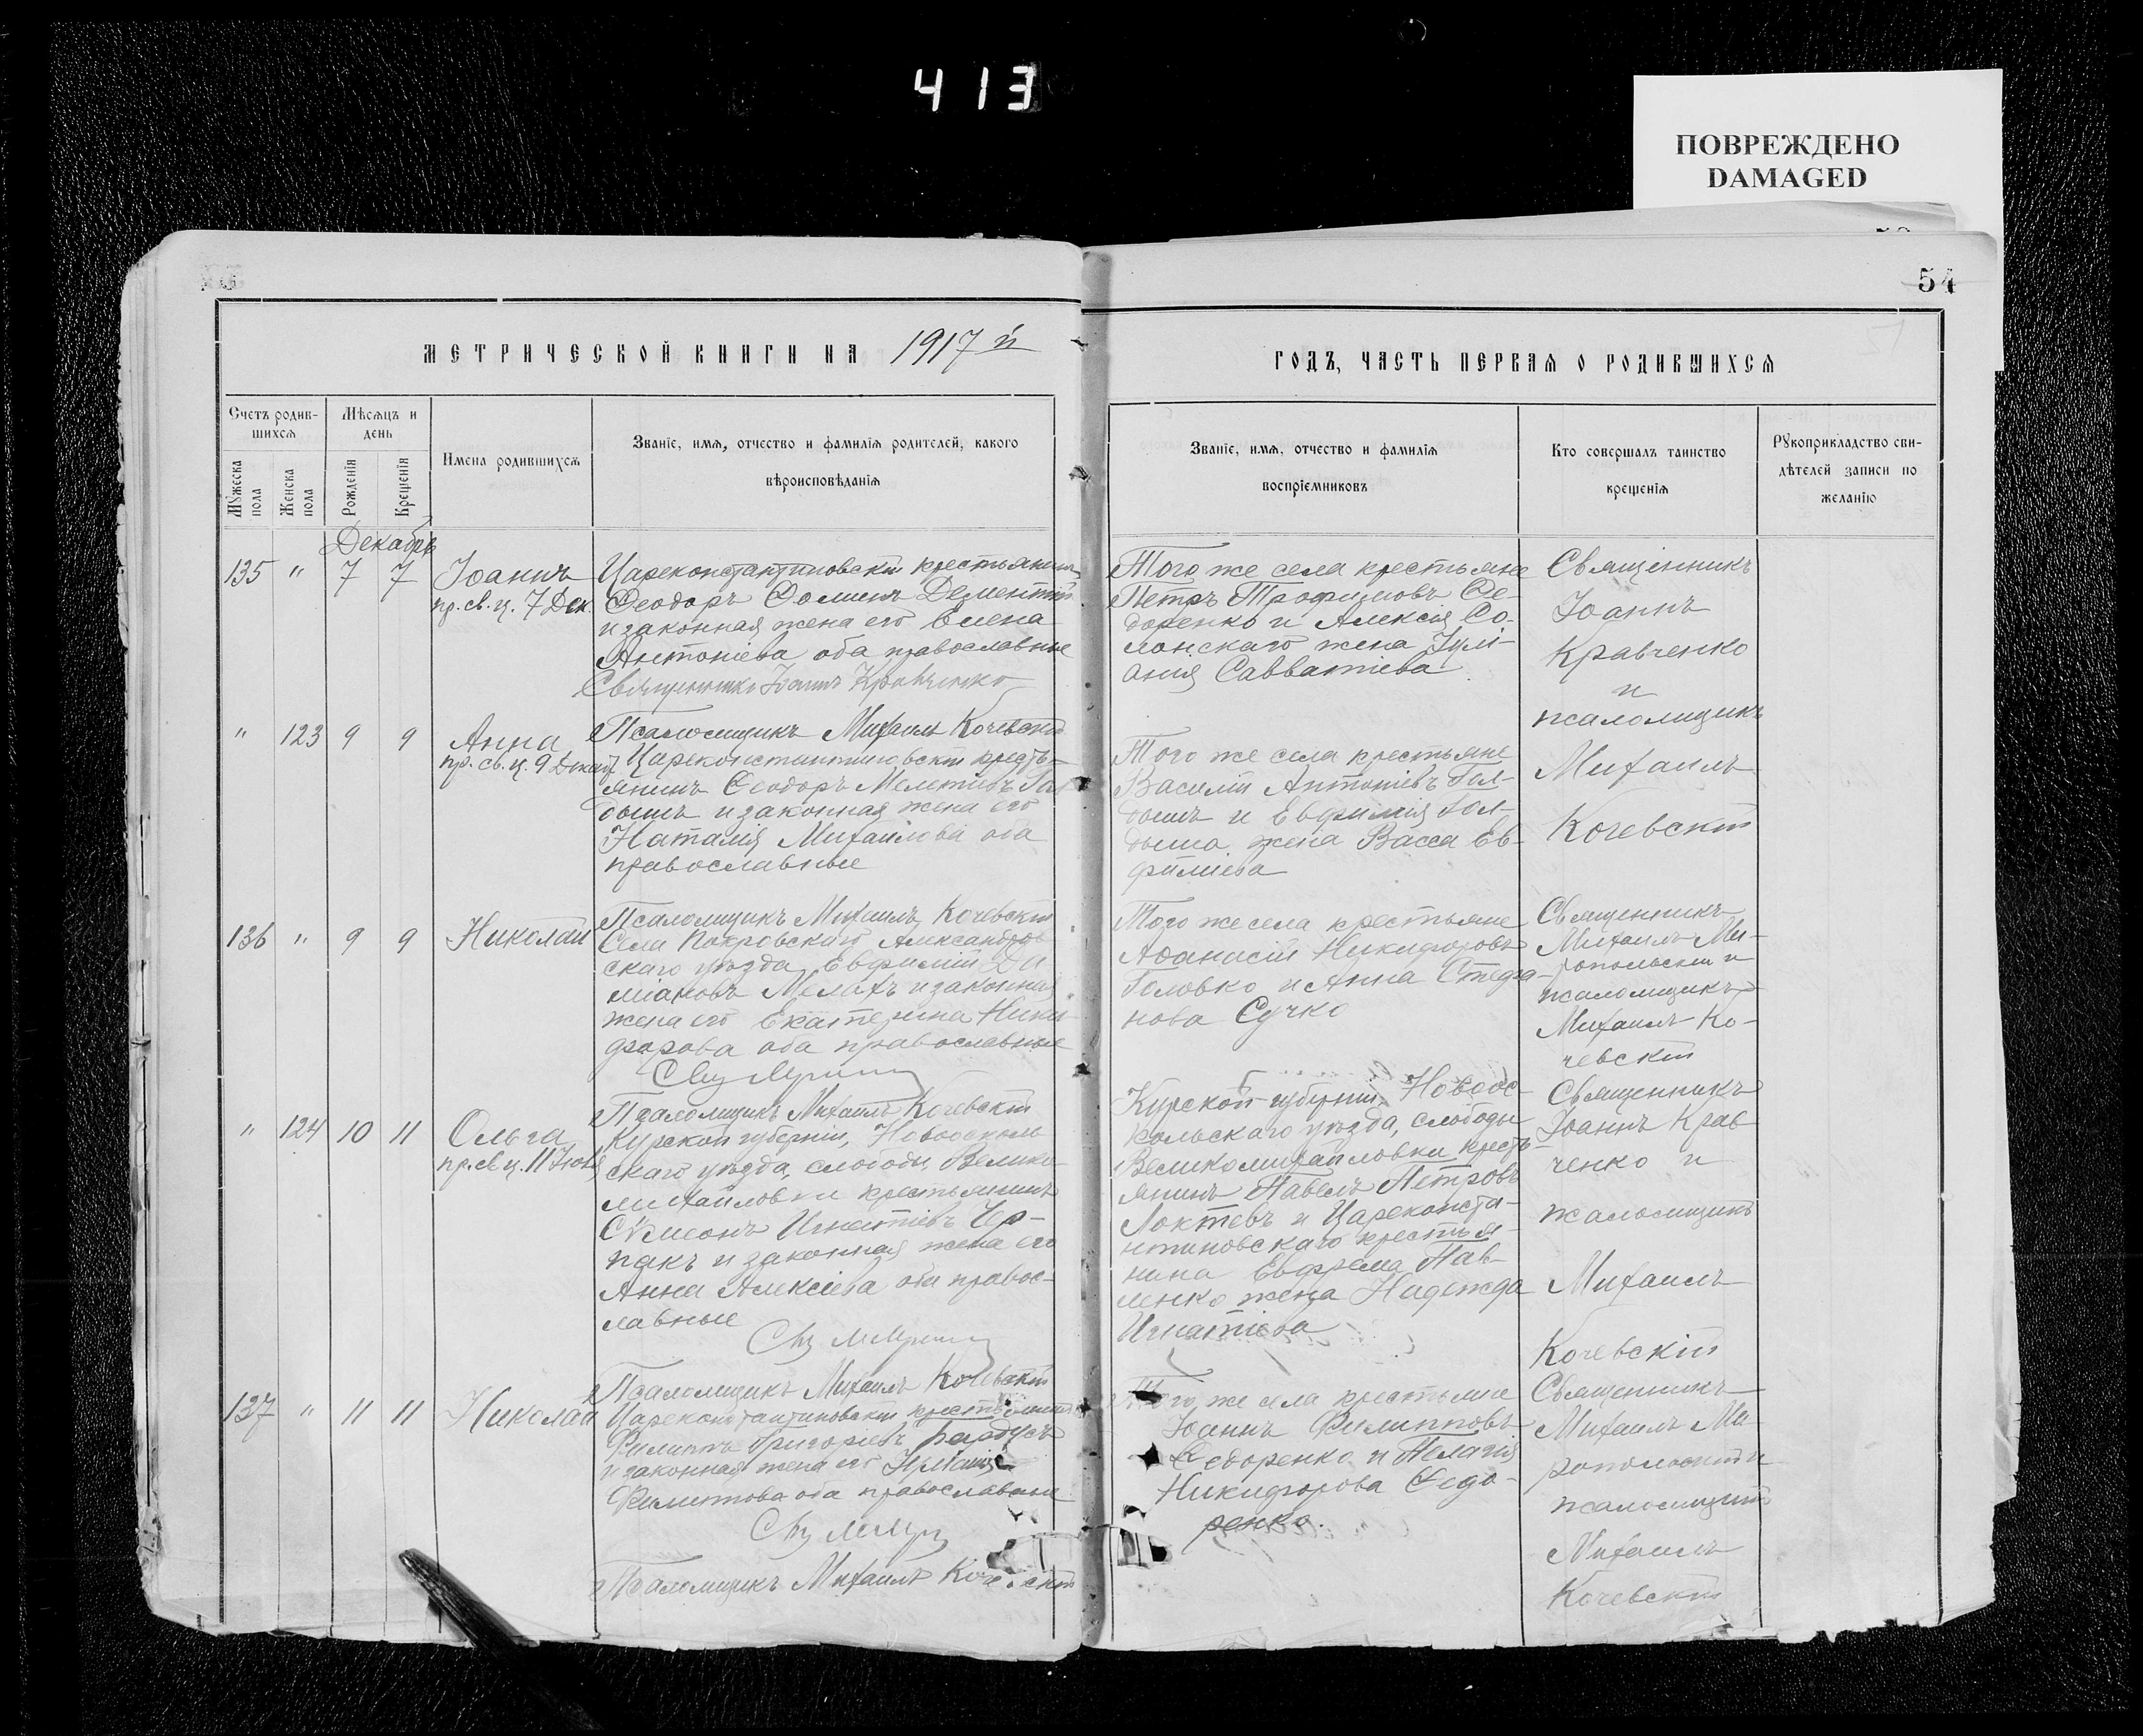 413
ПОВРЕЖДЕНО
DAMAGED
54
МЕТРИЧЕСКОЙ КНИГИ НА 1917 й
ГОДЪ, ЧАСТЬ ПЕРВАЯ О РОДИВШИХСЯ
Счетъ родив-
шихся
Мѣсяцъ и
день
Мужеска
пола
Женска
пола
Рожденія
Крещенія
Имена родившихся
Званіе, имя, отчество и фамилія родителей, какого
вѣроисповѣданія
Званіе, имя, отчество и фамилія
воспріемниковъ
Кто совершалъ таинство
крещенія
Рукоприкладство сви-
дѣтелей записи по
желанію
Декабрь
135 " 7 7 Іоаннъ
пр. св. ц. 7 Дек.
Цареконстантиновскій крестьянинъ
Ѳеодоръ Ѳоминъ Дементій
и законная жена его Елена
Антоніева оба православные
Священникъ Іоаннъ Кравченко
Псаломщикъ Михаилъ Кочевскій
Того же села крестьяне
Петръ Трофимовъ Ѳе-
доренко и Алексія Со-
лонскаго жена Іулі-
анія Савватіева
Священникъ
Іоаннъ
Кравченко
и
псаломщикъ
Михаилъ
Кочевскій
" 123 9 9 Анна
пр. св. ц. 9 Декаб.
Цареконстантиновскій кресть-
янинъ Ѳеодоръ Мелетіевъ
и законная жена его
Наталія Михаилова оба
православные
Псаломщикъ Михаилъ Кочевскій
Того же села крестьяне
Василій Антоніевъ Гол-
дышъ и Евфимія Гол-
дыша жена Васса Ев-
фиміева
136 " 9 9 Николай
Села Покровскаго Александров
скаго уѣзда Евфимій Да
міановъ и законная
жена его Екатерина Ники
форова оба православные
Псаломщикъ Михаилъ Кочевскій
Того же села крестьяне
Аѳанасій Никифоровъ
Головко и Анна Стефа-
нова Сучко
Священникъ
Михаилъ Ми-
ропольскій и
псаломщикъ
Михаилъ Ко-
чевскій
" 124 10 11 Ольга
пр. св. ц. 11 Іюля
Курской губерніи, Новооскольс
скаго уѣзда, слободы Велико
михайловки крестьянинъ
Сѵмеонъ Игнатіевъ Чер-
пакъ и законная жена его
Анна Алексіева оба правос-
лавные
Псаломщикъ Михаилъ Кочевскій
Курской губерніи, Новоос-
кольскаго уѣзда, слободы
Великомихайловки кресть-
янинъ Павелъ Петровъ
Локтевъ и Цареконста-
нтиновскаго крестья-
нина Евфрема Пав-
ленко жена Надежда
Игнатіева
Священникъ
Іоаннъ Крав
ченко и
псаломщикъ
Михаилъ
Кочевскій
137 " 11 11 Николай
Цареконстантиновскій крестьянинъ
Филиппъ Григорьевъ
и законная жена его
Филиппова оба православные
Псаломщикъ Михаилъ Кочевскій
Того же села крестьяне
Іоаннъ Филипповъ
Ѳедоренко и Пелагія
Никифорова Ѳедо-
ренко.
Священникъ
Михаилъ Ми
ропольскій и
псаломщикъ
Михаилъ
Кочевскій